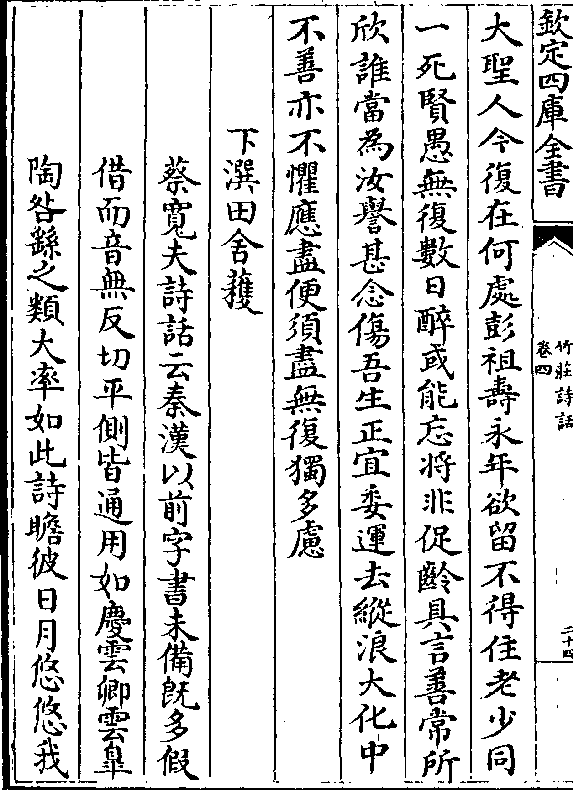 欽定四庫全書
竹莊詩話
卷四
二十四
大聖人今復在何處彭祖壽永年欲留不得住老少同
一死賢愚無復數日醉或能忘將非促齡具言善常所
欣誰當為汝譽甚念傷吾生正宜委運去縱浪大化中
不喜亦不懼應盡便須盡無復獨多慮
下潠田舍穫
蔡寬夫詩話云秦漢以前字書未備旣多假
借而音無反切平側皆通用如慶雲卿雲臯
陶咎繇之類大率如此詩瞻彼日月悠悠我